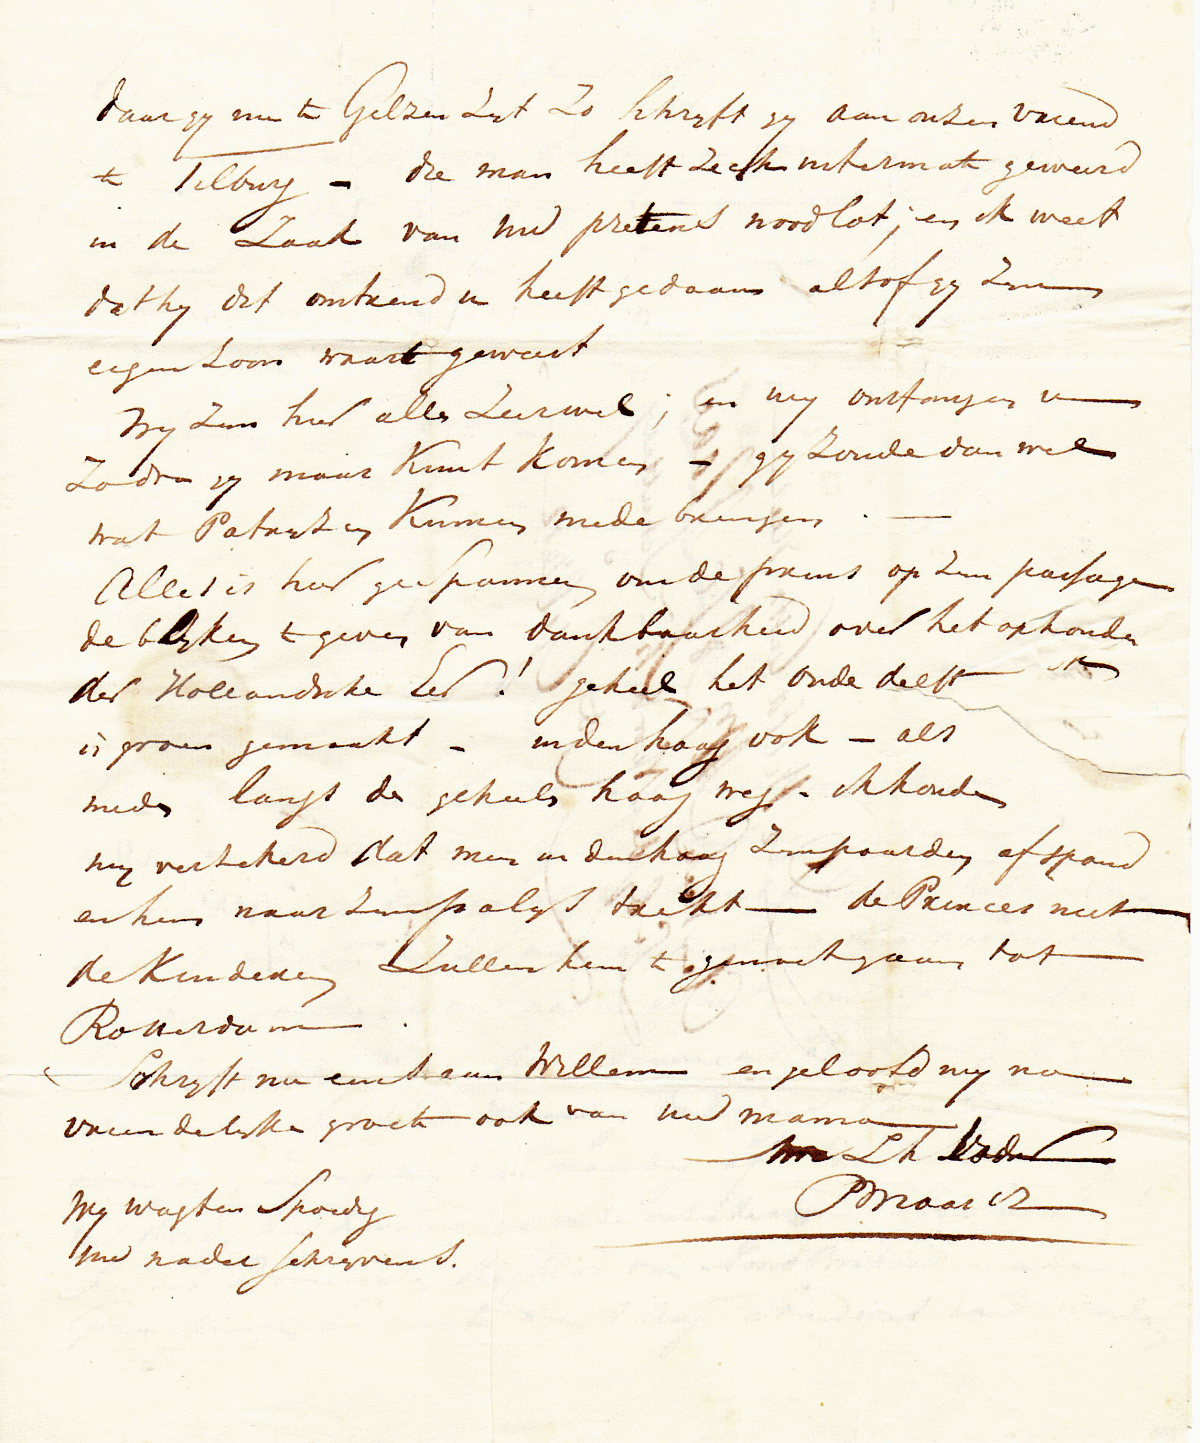 daar gy nu te Gilzen zyt zo schryft gy aan onzen vriend
te Tilburg – die man heeft zich uitermate geweerd
in de Zaak van uwd pretens noodlot; en ik weet
dat hy dit omtrend u heeft gedaan alsof gy zyn
eigen Zoon waart geweest
Wy zyn hier alle zeer wel; en wy ontfangen u
Zodra gy maar kunt komen – gy zoude dan wel
wat Patryzen kunnen mede brengen. —
Alles is hier gespannen om de prins op zyn passage
de blyken te geven van dankbaarheid over het ophouden
der Hollandsche Eer! geheel het oude delft
is groen gemaakt – in den haag ook – als
mede langs de geheele haag weg – ik houde
my verzekerd dat men in den haag zyn paarden afspand
en hem naar zyn palys trekt — de Princes met
de Kinderen zullen hem te gemoet gaan tot
Rotterdam.
Schryft nu eens aan Willem en geloofd my na
vriendelyke groete ook van uwe mama
uw Lh Vader
PMaas
Wy wagten spoedig
uwd nader schryvens.